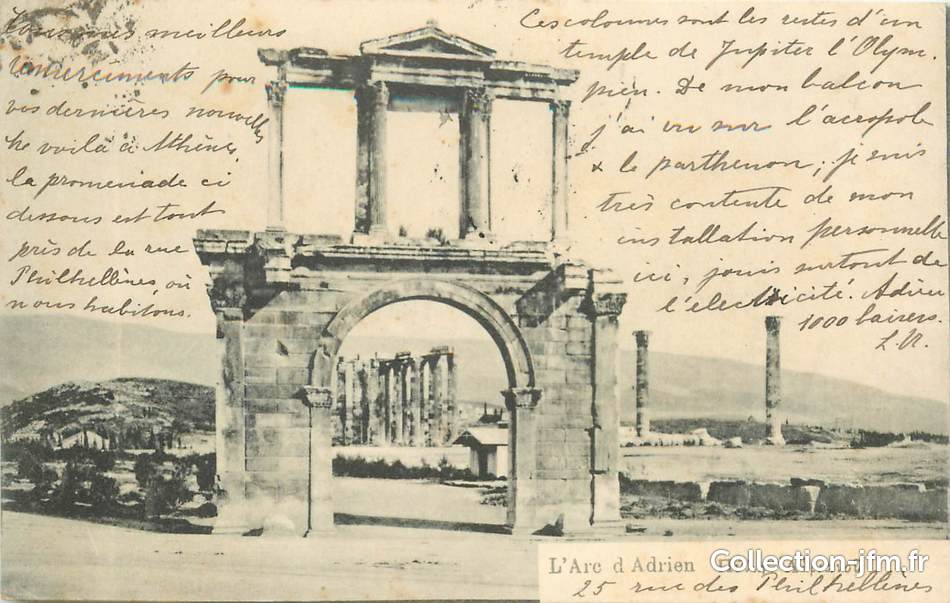 Tous mes meilleurs
remerciments pour
vos dernières nouvelles
Me voilà à Athènes,
la promenade ci
dessous est tout
près de la rue
Philhellènes, où
nous habitons.
Ces colonnes sont les restes d'un
temple de Jupiter l'Olym.
pien. De mon balcon
j'ai vu sur l'acropole
& le parthenon; je suis
très contente de mon
installation personnelle
ici, jouis surtout de
l'electricité. Adieu
1000 baisers.
L'Arc d'Adrien
Collection-jfm.fr
25 rue des Philhellènes